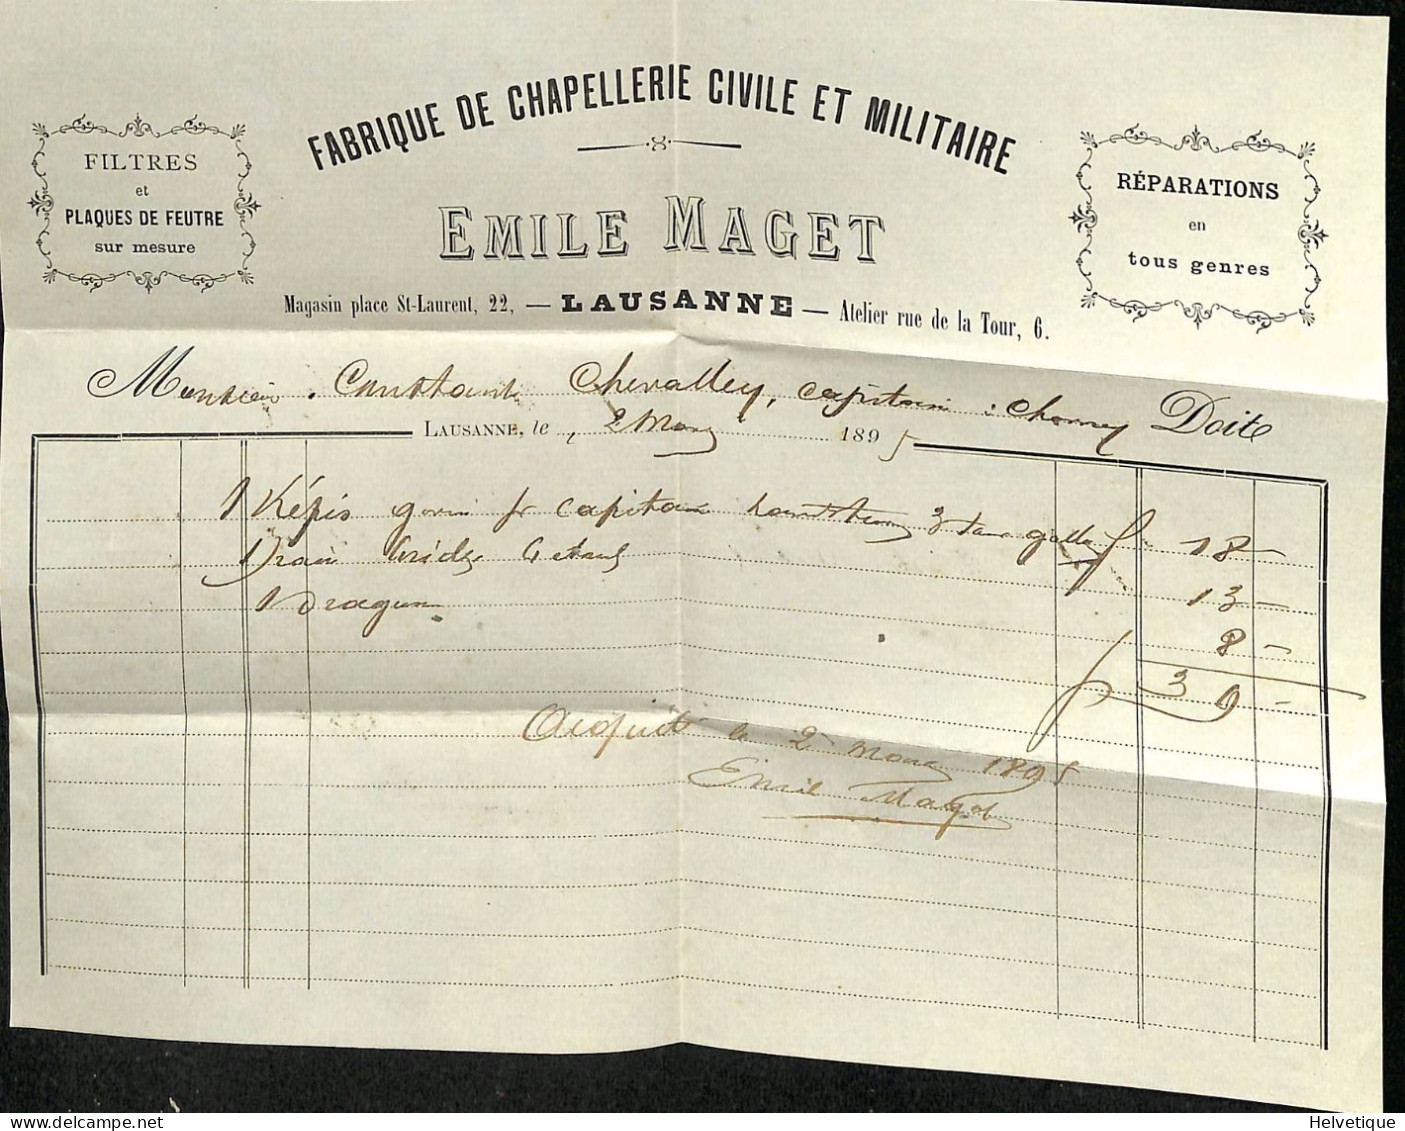 FABRIQUE DE CHAPELLERIE CIVILE ET MILITAIRE
FILTRES
et
PLAQUES DE FEUTRE
sur mesure
EMILE MAGET
RÉPARATIONS
en
tous genres
Magasin place St-Laurent, 22, — LAUSANNE — Atelier rue de la Tour, 6.
Monsieur Constant Chevalley, capitaine Doit
LAUSANNE, le 2 Mars 1895
1 Képis pr capitaine 18 —
13 —
1 Dragon 8 —
39 —
Acquité le 2 mars 1895
Emile Maget
Helvetique